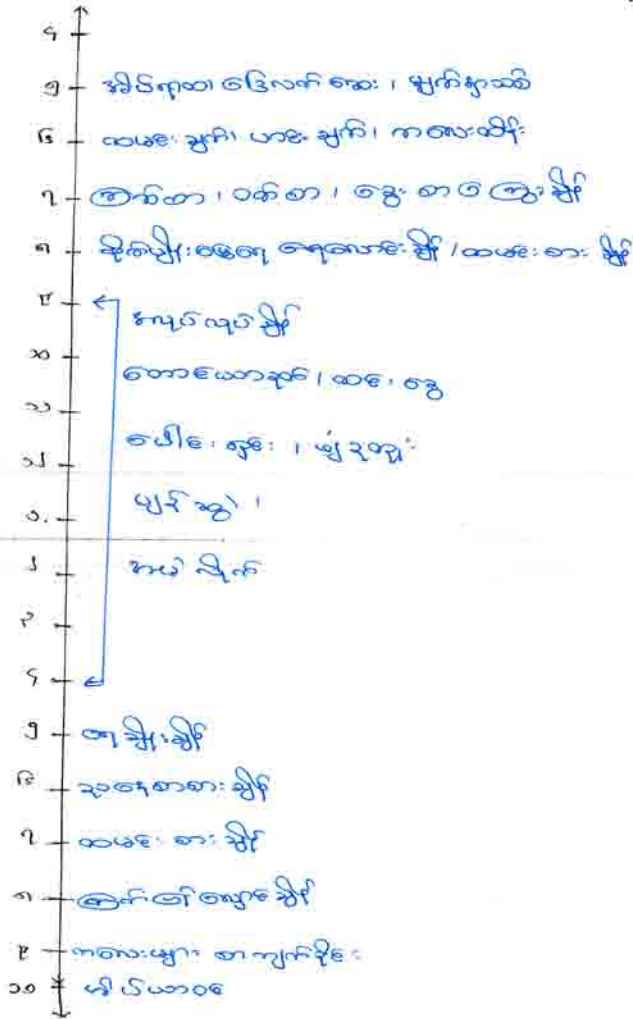 ၄
၅ အိပ်ရာထ၊ ခြေလက်ဆေး ၊ မျက်နှာသစ်
၆ ထမင်းချက်၊ ဟင်းချက်၊ ကလေးထိန်း
၇ ကြက်စာ ၊ ဝက်စာ ၊ ခွေးစာ ကျွေးချိန်
၈ စိုက်ပျိုးမွေးရေ ရေလောင်းချိန် / ထမင်းစားချိန်
၉ အလုပ်လုပ်ချိန်
၁၀ တောင်ယာခုတ် ၊ ထင်းခွေ
၁၁ ပေါင်းရှင်း ၊ မျှ
၁၂ မျှ
၁
၂ အမဲလိုက်
၃
၄
၅ ရေချိုးချိန်
၆ ညနေစာစားချိန်
၇ ထမင်းစားချိန်
၈ လျှောချိန်
၉ ကလေးများ စာကျက်ခိုင်း
၁၀ အိပ်ယာဝင်